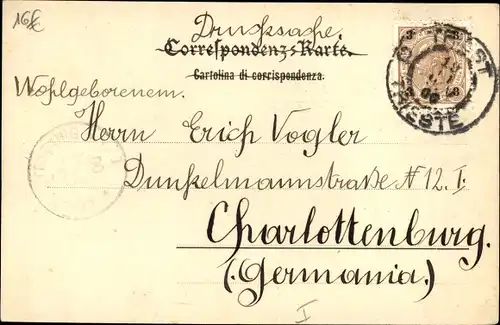 16
Drucksache.
Correspondenz-Karte.
Cartolina di corrispondenza.
3 3
TRIEST
TRIESTE
Wohlgeborenem.
Herrn Erich Vogler
Dunkelmannstraße N 12. I.
Charlottenburg.
(Germania.)
I